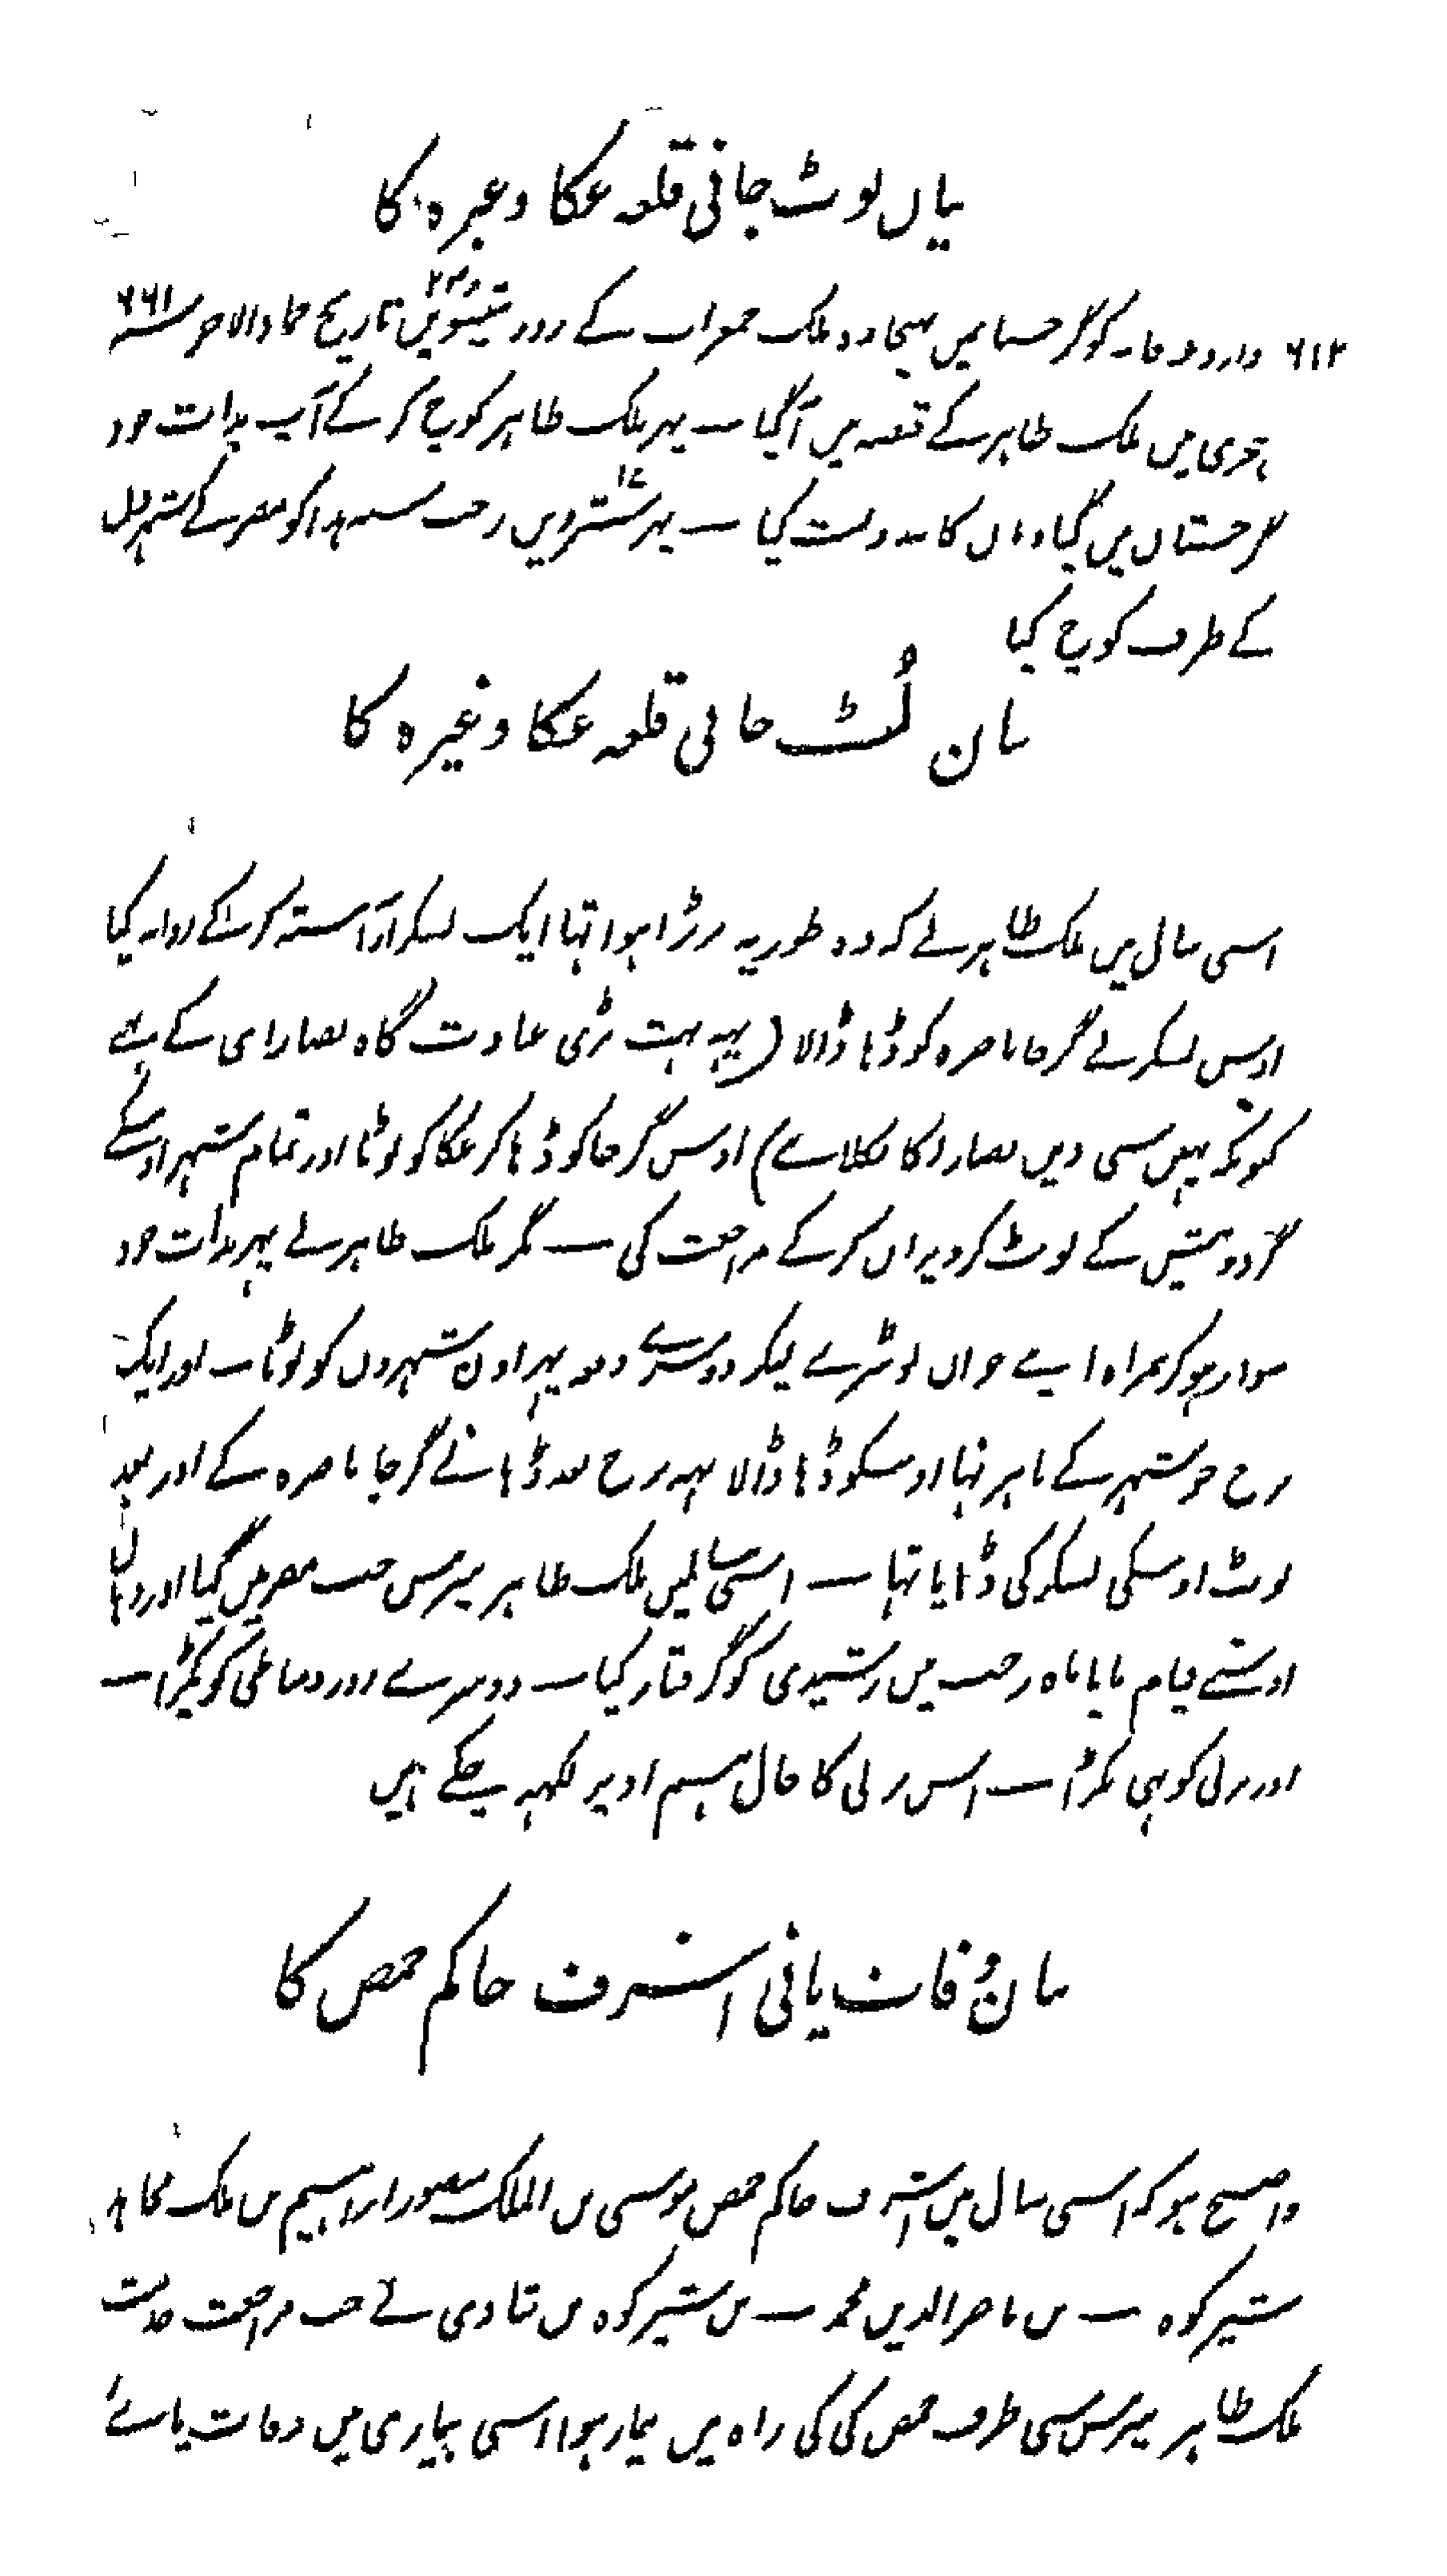 بیان لوٹ جانی قلعہ عکا وغیرہ کا
۶۱۲ داروغہ کو گرجستان میں بھیجا وہ ملک جمعرات کے روز تیئسویں ۲۳ تاریخ جمادالاخر سنہ ۶۶۱
ہجری میں ملک ظاہر کے قبضہ میں آگیا — پھر ملک ظاہر کوچ کر کے آپ بذات خود
گرجستان میں گیا وہاں کا بندوبست کیا — پھر سترویں ۱۷ رجب سنہ ہذا کو مصر کے شہر
کے طرف کوچ کیا
بیان لُٹ جانی قلعہ عکا وغیرہ کا
اسی سال میں ملک ظاہر نے کہ وہ طور پر پڑا ہوا تہا ایک لشکر آراستہ کر کے روانہ کیا
اوس لشکر نے گرجا ناصرہ کو ڈہا ڈالا (یہہ بہت بڑی عبادت گاہ نصارای کے ہے
کیونکہ یہیں سی دین نصارا کا نکلا ہے) اوس گرجا کو ڈہا کر عکا کو لوٹا اور تمام شہر اوسکے
گردو پیش کے لوٹ کر ویران کر کے مراجعت کی — مگر ملک ظاہر نے پھر بذات خود
سوار ہو کر ہمراہ اپنے جوان لوٹیرے لیکر دوسرے دفعہ پھر اون شہروں کو لوٹا — اور ایک
برج جو شہر کے باہر تہا اوسکو ڈہا ڈالا یہہ برج بعد ڈہانے گرجا ناصرہ کے اور بعد
لوٹ اوسکی لشکر کی ڈہایا تہا — اسی سالمیں ملک ظاہر بیبرس جب مصر میں گیا اور وہاں
اوسنے قیام پایا ماہ رجب میں رشیدی کو گرفتار کیا — دوسرے روز دمیاطی کو پکڑا —
اور برلی کو بہی پکڑا — اس برلی کا حال ہم اوپر لکہہ چکے ہیں
بیان وُفات پانی اشرف حاکم حمص کا
واضح ہو کہ اسی سال میں اشرف حاکم حمص موسی بن الملک منصور ابراہیم بن ملک مجاہد
شیر کوہ — بن ناصر الدین محمد — بن شیر کوہ بن شادی نے جب مراجعت خدمت
ملک ظاہر بیبرس سی طرف حمص کی کی راہ میں بیمار ہوا اسی بیماری میں وفات پائے